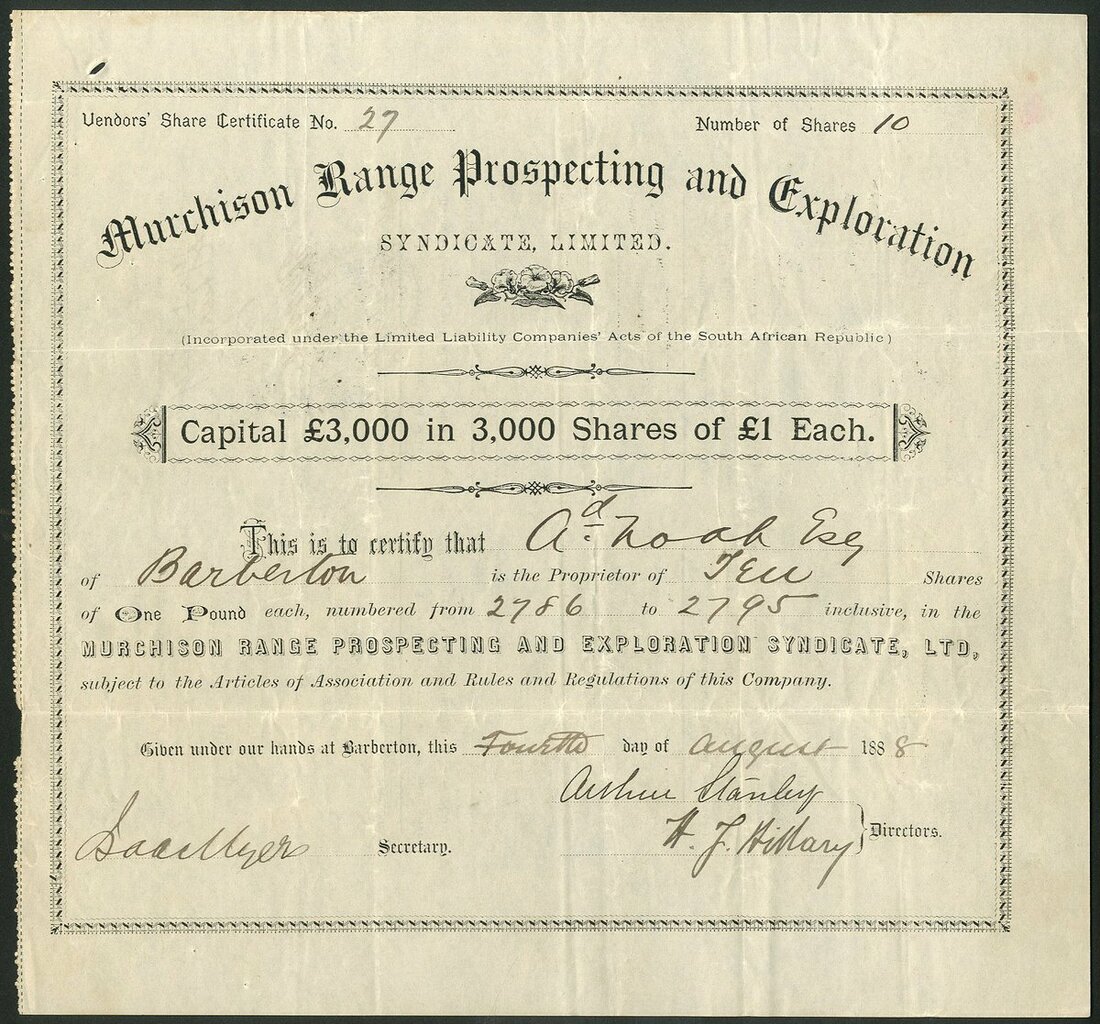 Vendors' Share Certificate No. 27 Number of Shares 10
Murchison Range Prospecting and Exploration
SYNDICATE, LIMITED.
(Incorporated under the Limited Liability Companies' Acts of the South African Republic)
Capital £3,000 in 3,000 Shares of £1 Each.
This is to certify that Ad. Noah Esq
of Barberton is the Proprietor of Ten Shares
of One Pound each, numbered from 2786 to 2795 inclusive, in the
MURCHISON RANGE PROSPECTING AND EXPLORATION SYNDICATE, LTD,
subject to the Articles of Association and Rules and Regulations of this Company.
Given under our hands at Barberton, this Fourth day of August 1888
Arthur Stanley
H. J. Hillary Directors.
Secretary.